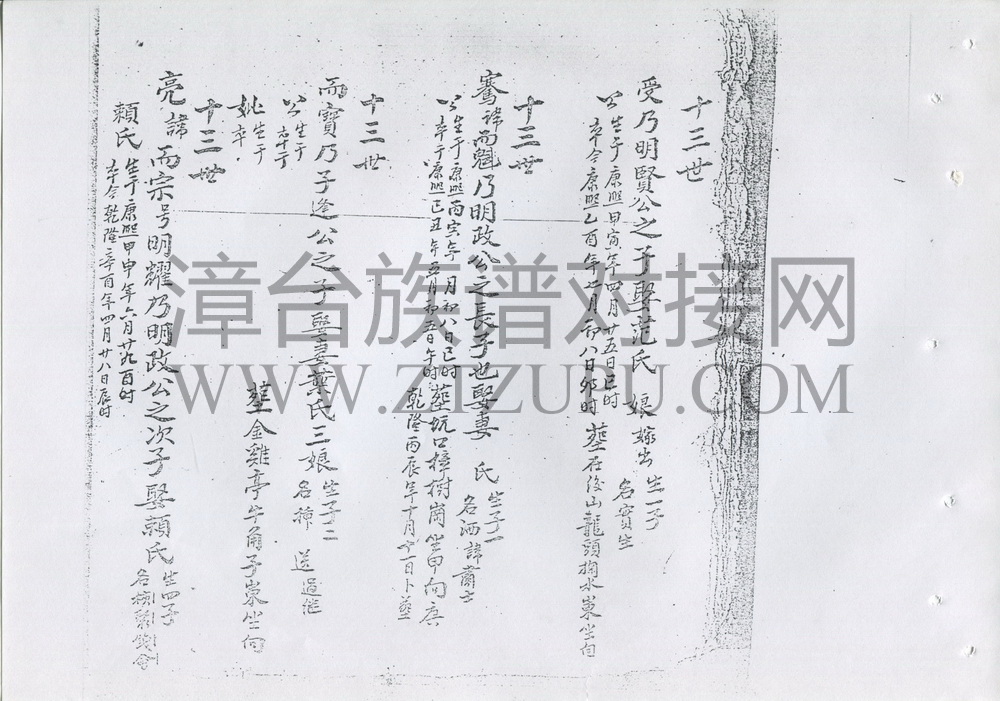 十三世
受乃明賢公之子娶范氏 娘嫁出 生一子 名實生
公生于康熙甲寅年四月廿五日巳时
卒今康熙乙酉年七月初八日卯时 葬在後山龍頭掬水崬坐向
十三世
騫諱而魁乃明政公之長子也娶妻 氏 生子一 名洒諱蘭士
公生于康熙丙寅年 月初八日巳时
卒于康熙己丑年五月初五日午时 葬坑口樟樹崗坐甲向庚
乾隆丙辰年十月十一日卜葬
十三世
而寶乃子逢公之子娶妻葉氏三娘 生子二 名 送過继
公生于
妣生于
卒
葬金雞亭牛角子崬坐向
十三世
亮諱而宗号明耀乃明政公之次子娶賴氏 生四子
賴氏 生于康熙甲申年六月廿九酉时
卒今乾隆辛酉年四月廿八日辰时
漳台族谱对接网
WWW.ZIZUPU.COM